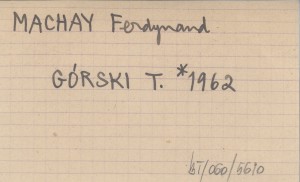 MACHAY Ferdynand
GÓRSKI T. *1962
BT/060/5610